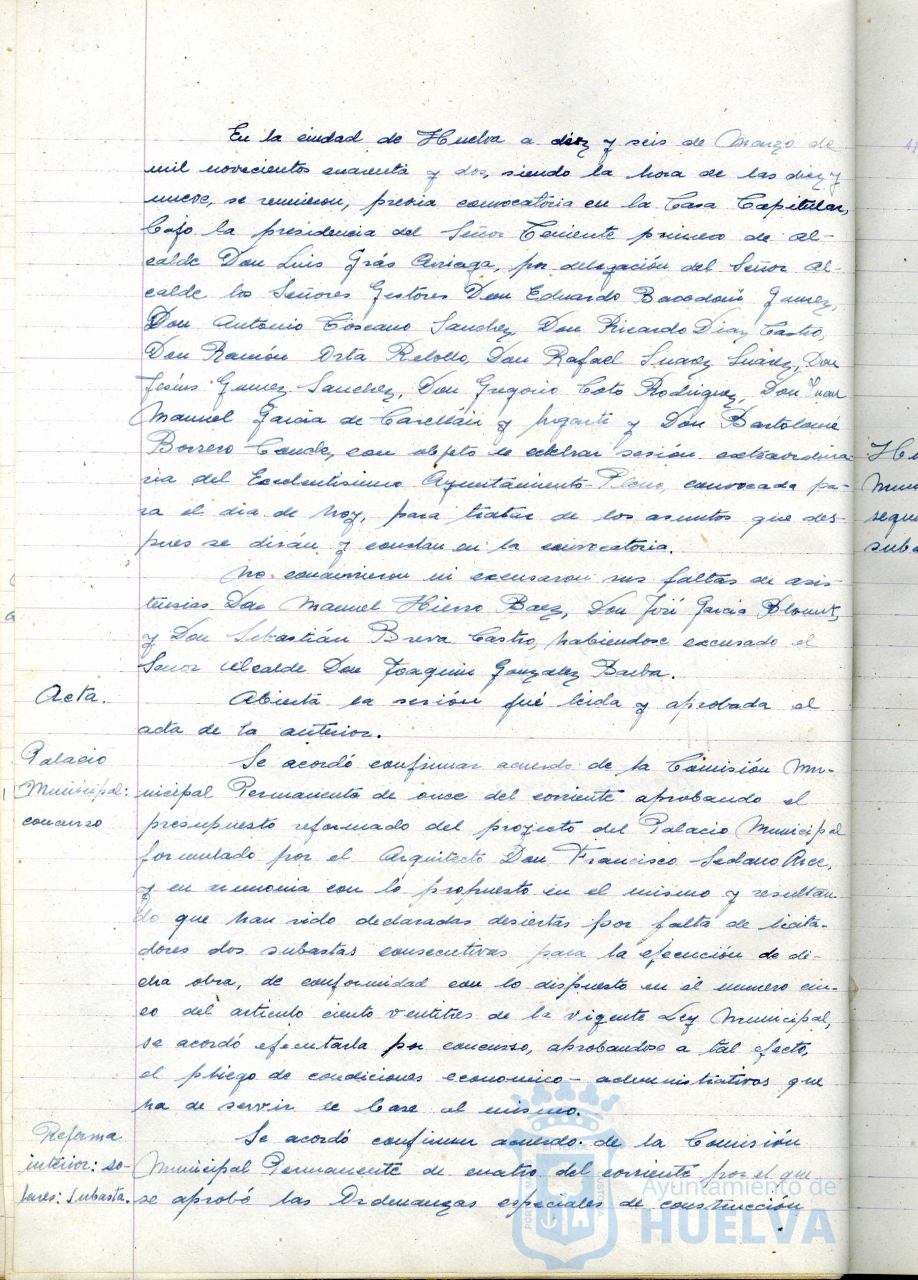 En la ciudad de Huelva a diez y seis de Marzo de
mil novecientos cuarenta y dos, siendo la hora de las diez y
nueve, se reunieron, previa convocatoria en la Casa Capitular,
bajo la presidencia del Señor Teniente primero de Al-
calde Don Luis Grás Arriaga, por delegación del Señor Al-
calde los Señores Gestores Don Eduardo Gomez,
Don Antonio Toscano Sanchez, Don Ricardo Diaz Castro,
Don Ramón Orta Rebollo, Don Rafael Suarez Suarez, Don
Jesús Gomez Sanchez, Don Gregorio Coto Rodriguez, Don Juan
Manuel Garcia de Castellón y y Don Bartolome
Borrero Conde, con objeto de celebrar sesión extraordina-
ria del Excelentisimo Ayuntamiento-Pleno, convocada pa-
ra el dia de hoy, para tratar de los asuntos que des-
pues se dirán y constan en la convocatoria.
No concurrieron ni excusaron sus faltas de asis-
tensias Don Manuel Hierro Baez, Don José Garcia
y Don Sebastián Breva Castro, habiendose excusado el
Señor Alcalde Don Joaquin Gonzalez Barba.
Acta.
Abierta la sesión fué leida y aprobada el
acta de la anterior.
Palacio
Municipal:
concurso
Se acordó confirmar acuerdo de la Comisión Mu-
nicipal Permanente de once del corriente aprobando el
presupuesto reformado del proyecto del Palacio Municipal
formulado por el Arquitecto Don Francisco Sedano Arce,
y en armonia con lo propuesto en el mismo y resultan-
do que han sido declaradas desiertas por falta de licita-
dores dos subastas consecutivas para la ejecución de di-
cha obra, de conformidad con lo dispuesto en el numero cin-
co del articulo ciento ventitres de la vigente Ley Municipal,
se acordó ejecutarla por concurso, aprobandose a tal efecto,
el pliego de condiciones economico-administrativas que
ha de servir de base al mismo.
Reforma
interior: so-
lares: subasta.
Se acordó confirmar acuerdo de la Comisión
Municipal Permanente de cuatro del corriente por el que
se aprobó las Ordenanzas especiales de construcción
Ayuntamiento de
HUELVA